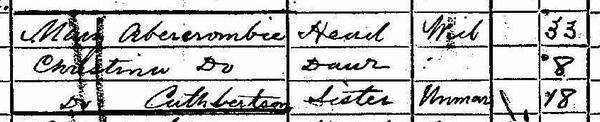 Mary Abercrombie Head Wid 33
Christina Do Daur 8
Do Cuthbertson Sister Unmar 18